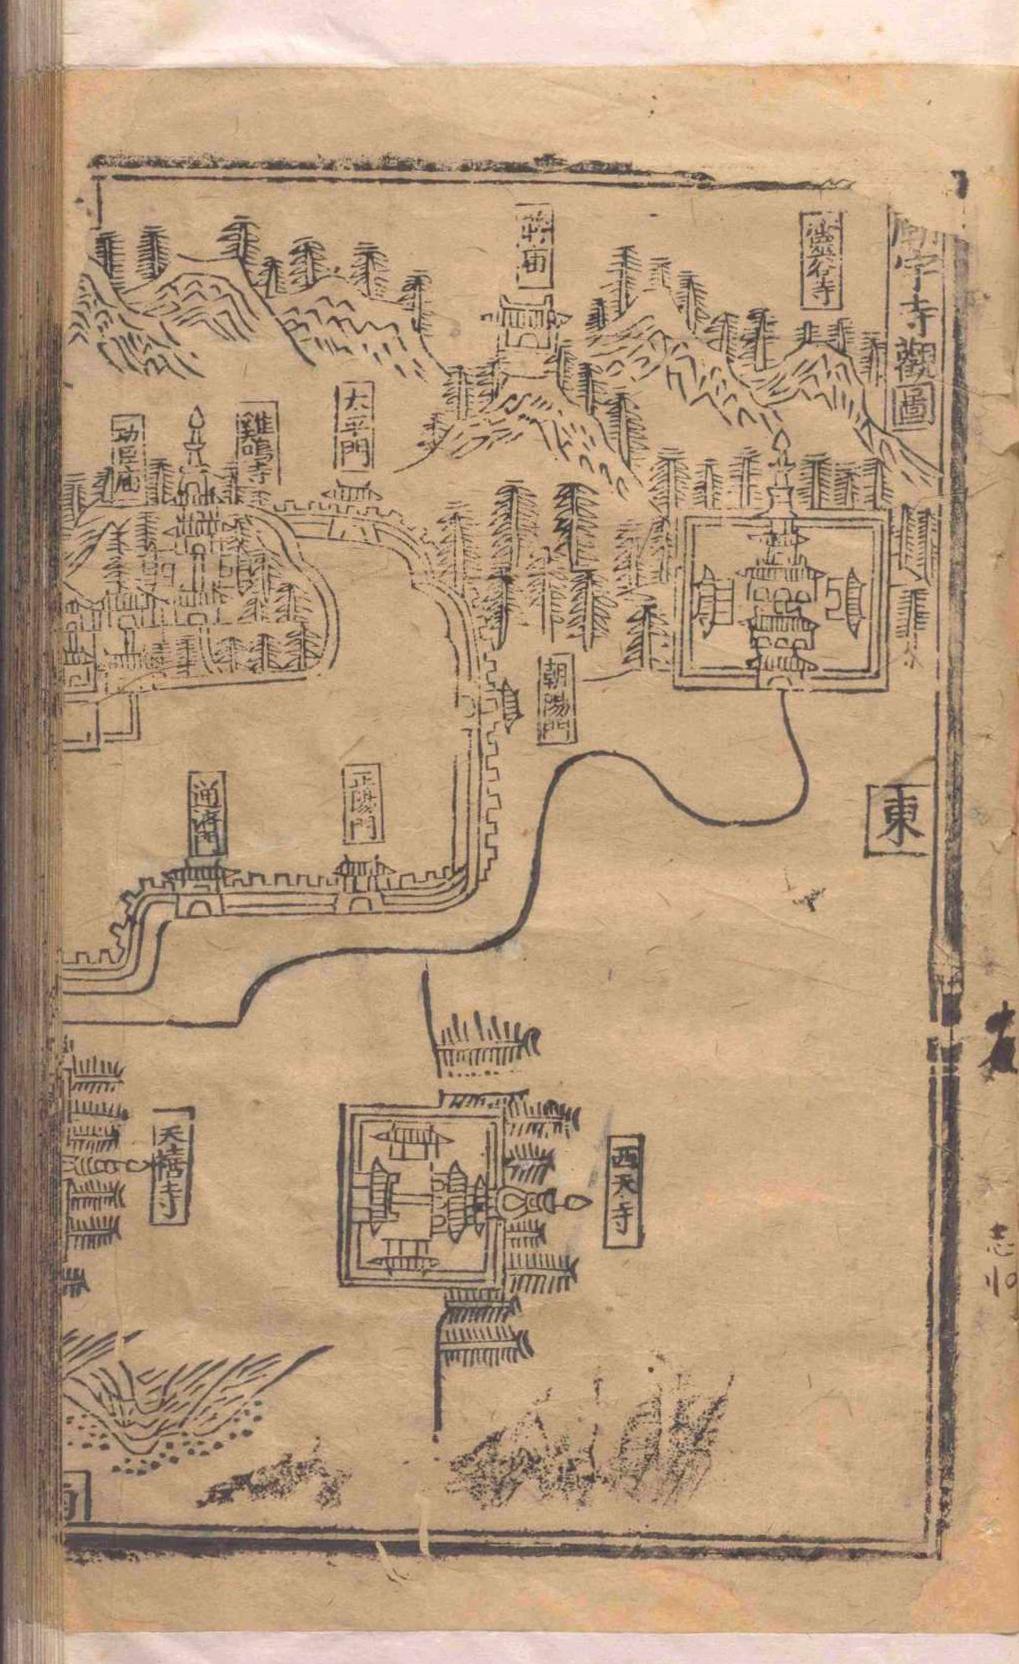 廟宇寺觀圖
靈谷寺
蔣廟
太平門
雞鳴寺
功臣庙
朝陽門
正陽門
通濟門
東
西天寺
天禧寺
南
志